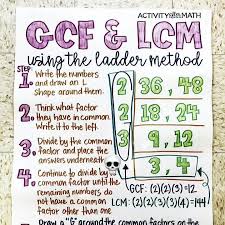 ACTIVITY AFTER MATH
GCF & LCM
using the ladder method
STEP
1. Write the numbers
and draw an L
shape around them.
2. Think what factor
they have in common.
Write it to the left.
3. Divide by the common
factor and place the
answers underneath
4. Continue to divide by
common factor until the
remaining numbers
do not have a common
factor other than one.
Draw a "G" around the common factors on the
2 36, 48
2 18, 24
3 9, 12
3, 4
GCF: (2)(2)(3)=12
LCM: (2)(2)(3)(3)(4)=144